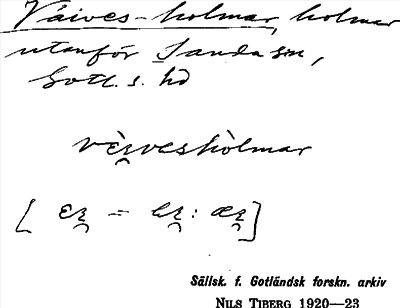 Väives-holmar, holmar
utanför Sanda sn,
Gotl. s. hd
vèi̯veshòlmar
[ ɛi̯ = ei̯ : æi̯ ]
Sällsk. f. Gotländsk forskn. arkiv
NILS TIBERG 1920—23